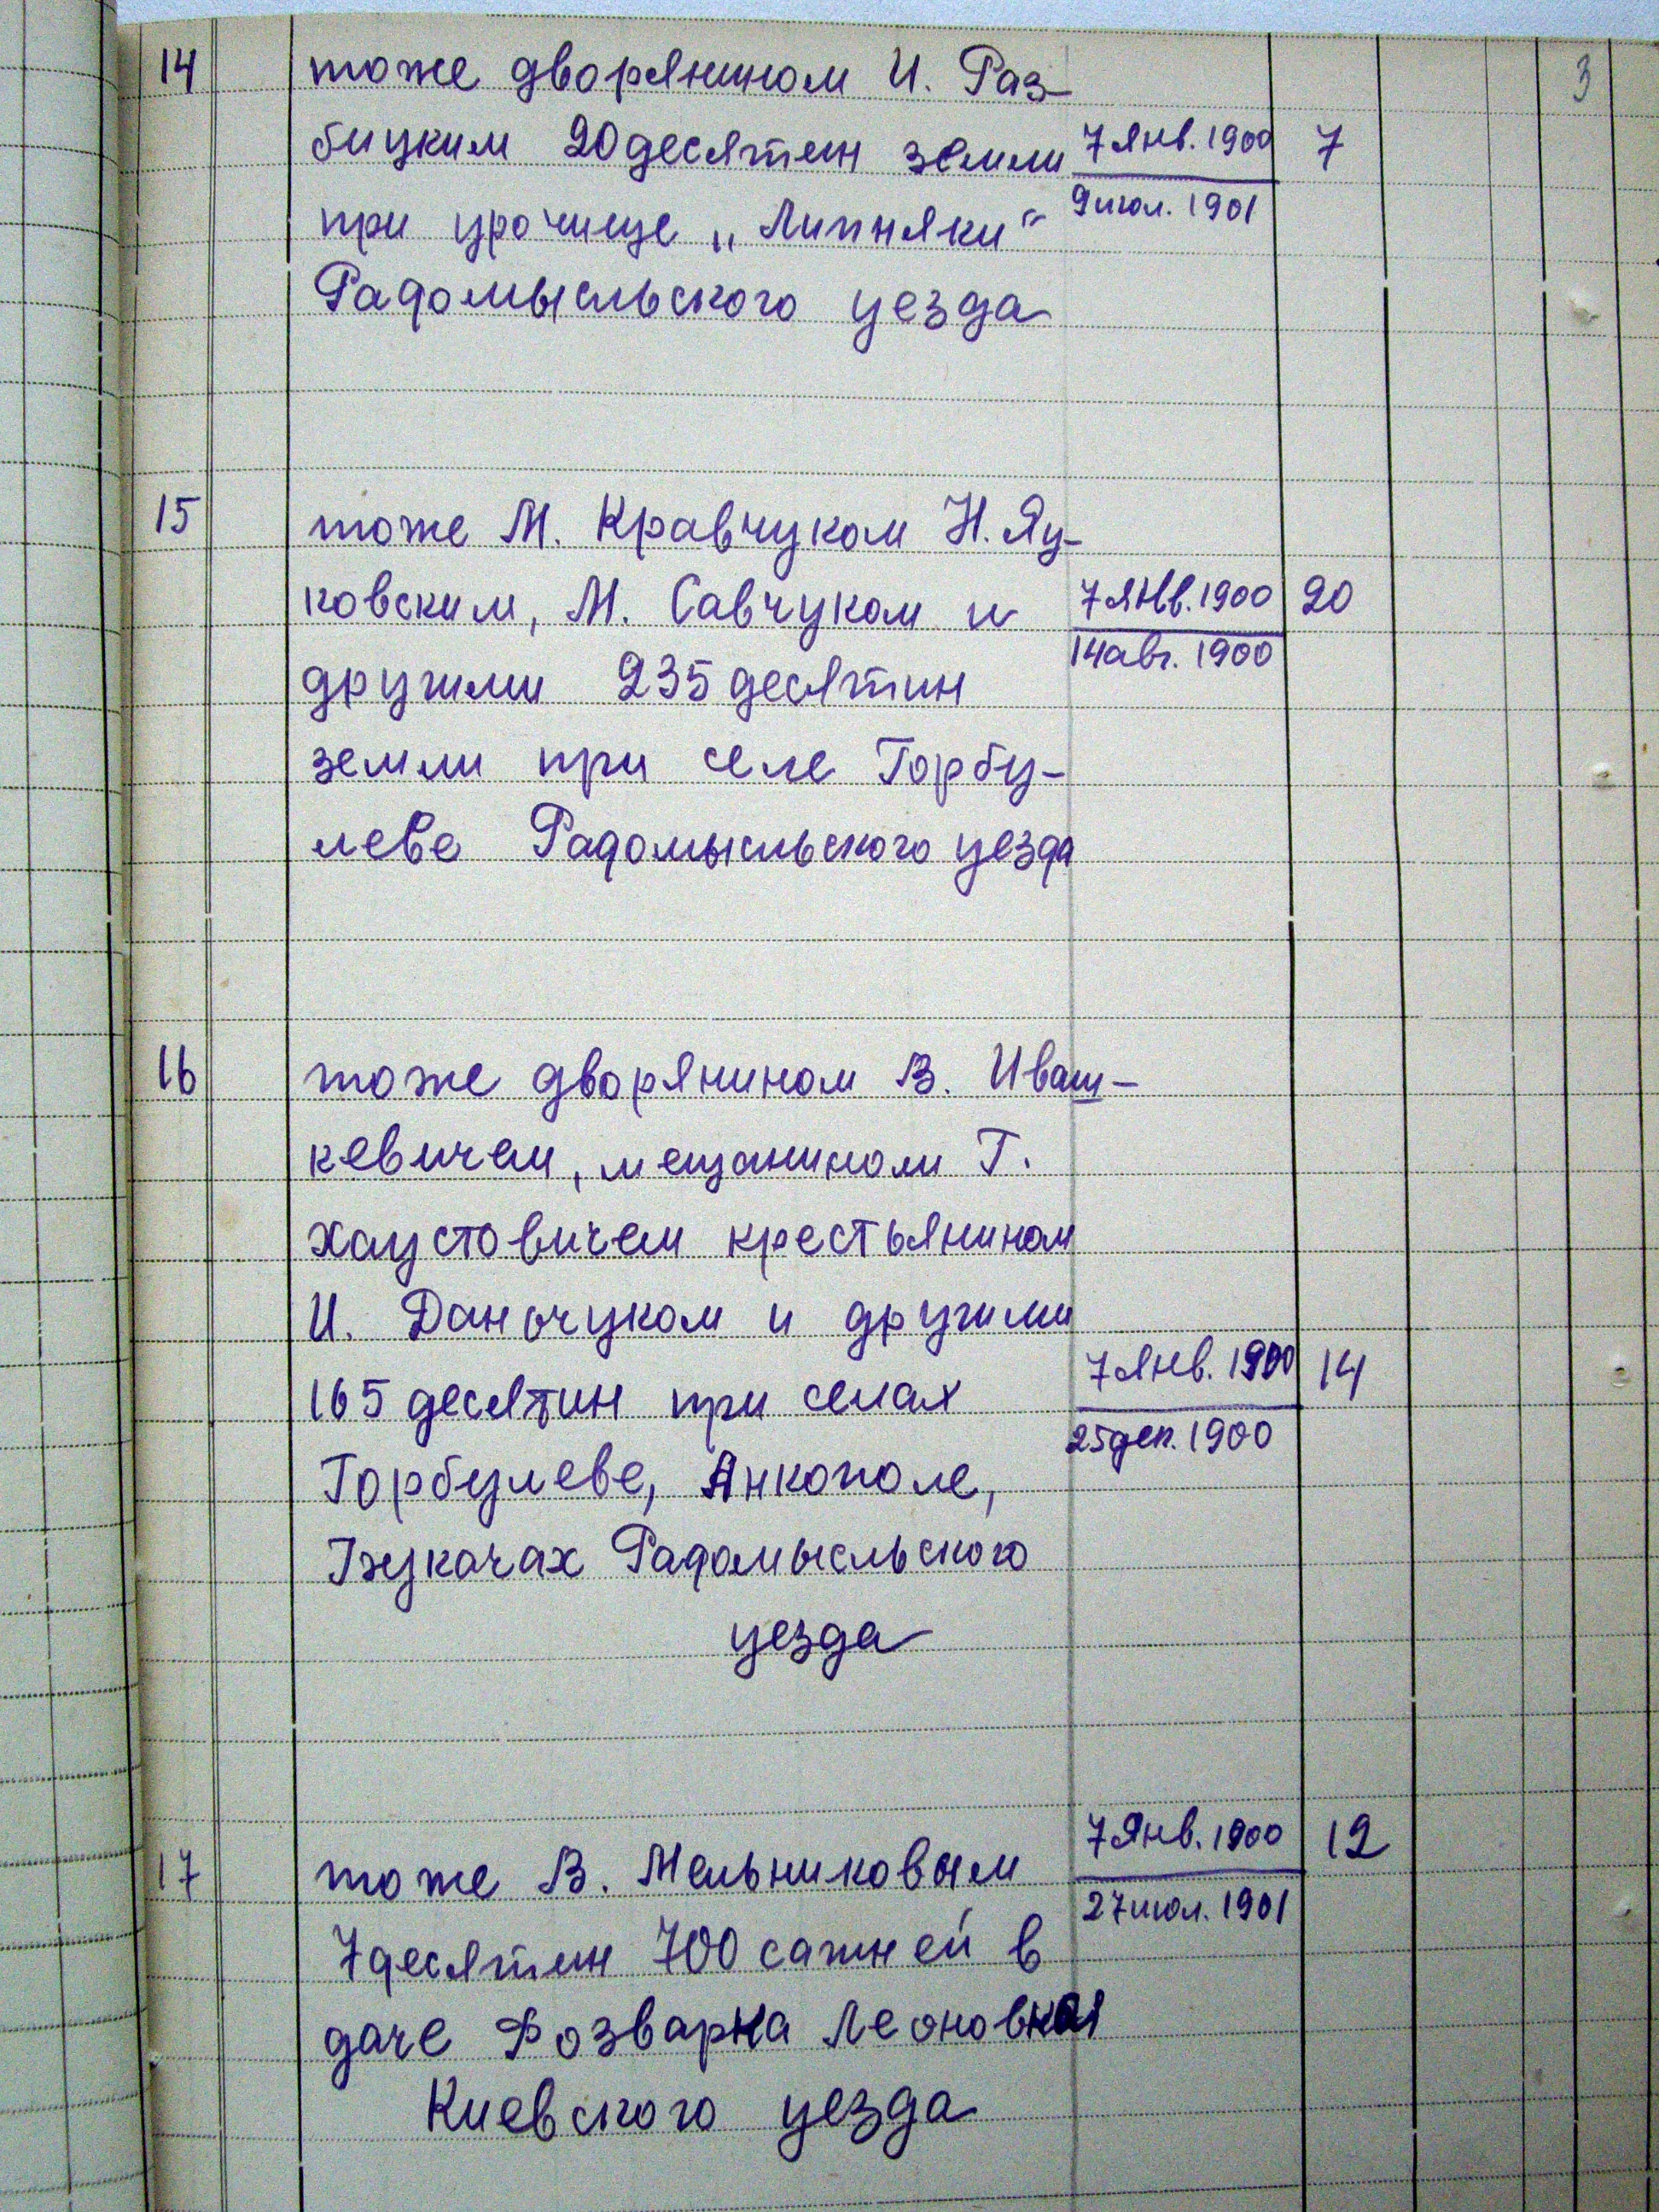 3
14 тоже дворянином И. Раз-
бицким 20 десятин земли 7 янв. 1900 7
при урочище „Липняки“ 9 июл. 1901
Радомысльского уезда
15 тоже М. Кравчуком Н. Яц-
ковским, М. Савчуком и 7 янв. 1900 20
другими 235 десятин 14 авг. 1900
земли при селе Горбу-
леве Радомысльского уезда
16 тоже дворянином В. Иваш-
кевичем, мещанином Г.
Хаустовичем крестьянином
И. Даньчуком и другими
165 десятин при селах 7 янв. 1900 14
Горбулеве, Янкополе, 25 дек. 1900
Гжукачах Радомысльского
уезда
17 тоже В. Мельниковым 7 янв. 1900 12
7 десятин 700 сажней в 27 июл. 1901
даче Розварка Леоновка
Киевского уезда